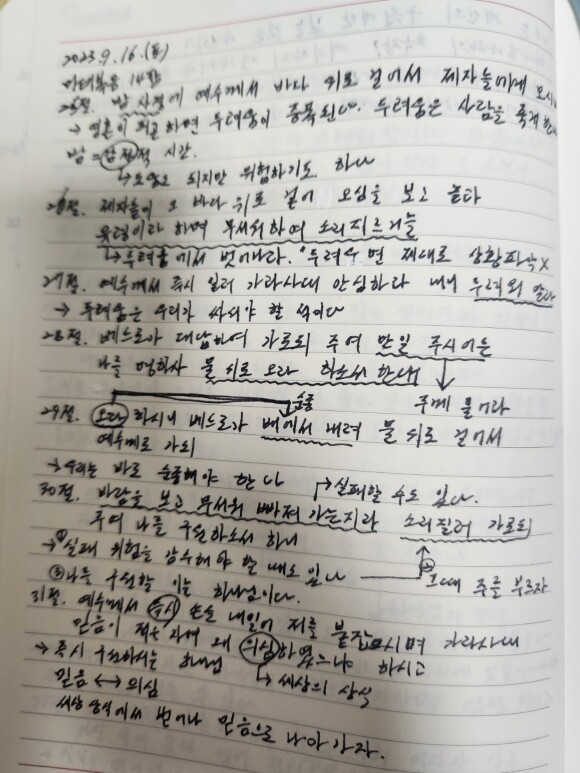 2023.9.16.(토)
마태복음 14장
25절. 밤 사경에 예수께서 바다 위로 걸어서 제자들에게 오시니
→ 영혼이 피곤하면 두려움이 증폭된다. 두려움은 사람을 죽게 한다
밤 = 감정적 시간.
→ 도움도 되지만 위험하기도 하다
26절. 제자들이 그 바다 위로 걸어 오심을 보고 놀라
유령이라 하며 무서워하여 소리지르거늘
→ 두려움에서 벗어나라. 두려우면 제대로 상황파악 X
27절. 예수께서 즉시 일러 가라사대 안심하라 내니 두려워 말라
→ 두려움은 우리가 싸워야 할 적이다
28절. 베드로가 대답하여 가로되 주여 만일 주시어든
나를 명하사 물 위로 오라 하소서 한대
순종
주께 물어라
29절. 오라 하시니 베드로가 배에서 내려 물 위로 걸어서
예수께로 가되
→ 우리는 바로 순종해야 한다
→ 실패할 수도 있다.
30절. 바람을 보고 무서워 빠져 가는지라 소리질러 가로되
주여 나를 구원하소서 하니
→ ① 실패 위험을 감수해야 할 때도 있다
② 그때 주를 부르자
③ 나를 구원할 이는 하나님이다.
31절. 예수께서 즉시 손을 내밀어 저를 붙잡으시며 가라사대
믿음이 적은 자여 왜 의심하였느냐 하시고
→ 즉시 구원하시는 하나님
→ 세상의 상식
믿음 ↔ 의심
세상 상식에서 벗어나 믿음으로 나아가자.